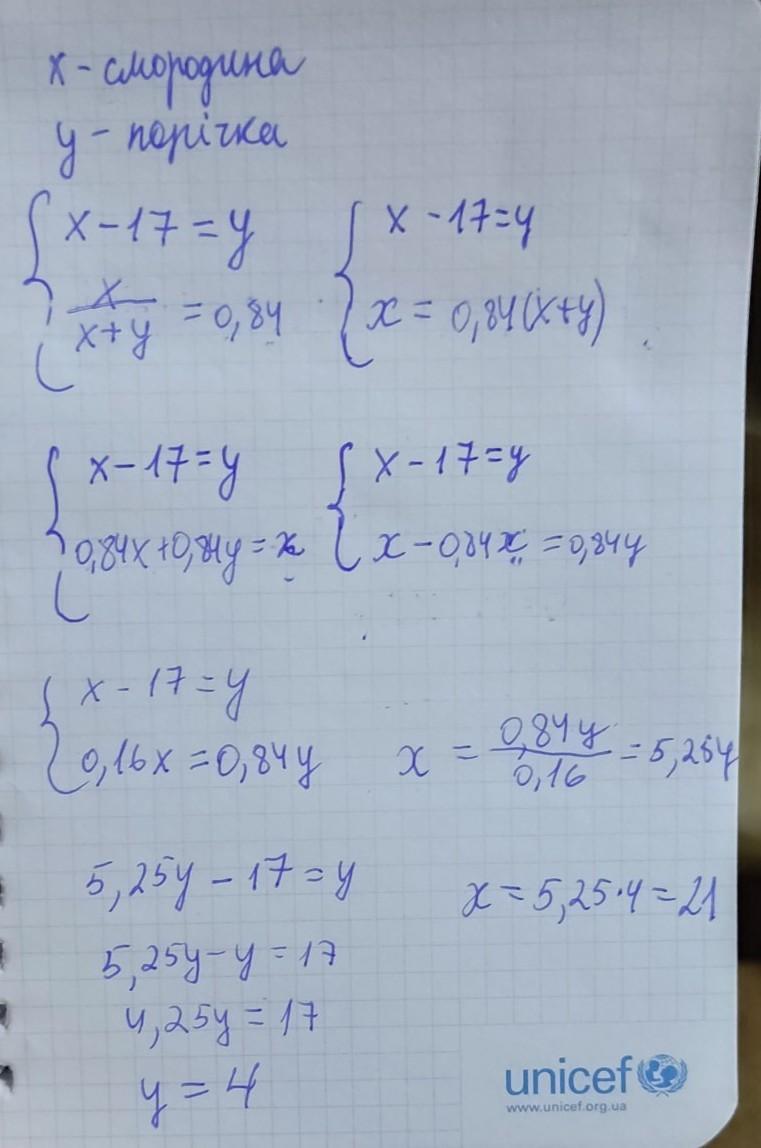 x - смородина
y - порічка
x - 17 = y
x/(x+y) = 0,84
x - 17 = y
x = 0,84(x+y)
x - 17 = y
0,84x + 0,84y = x
x - 17 = y
x - 0,84x = 0,84y
x - 17 = y
0,16x = 0,84y
x = 0,84y/0,16 = 5,25y
5,25y - 17 = y
5,25y - y = 17
4,25y = 17
y = 4
x = 5,25·4 = 21
unicef
www.unicef.org.ua